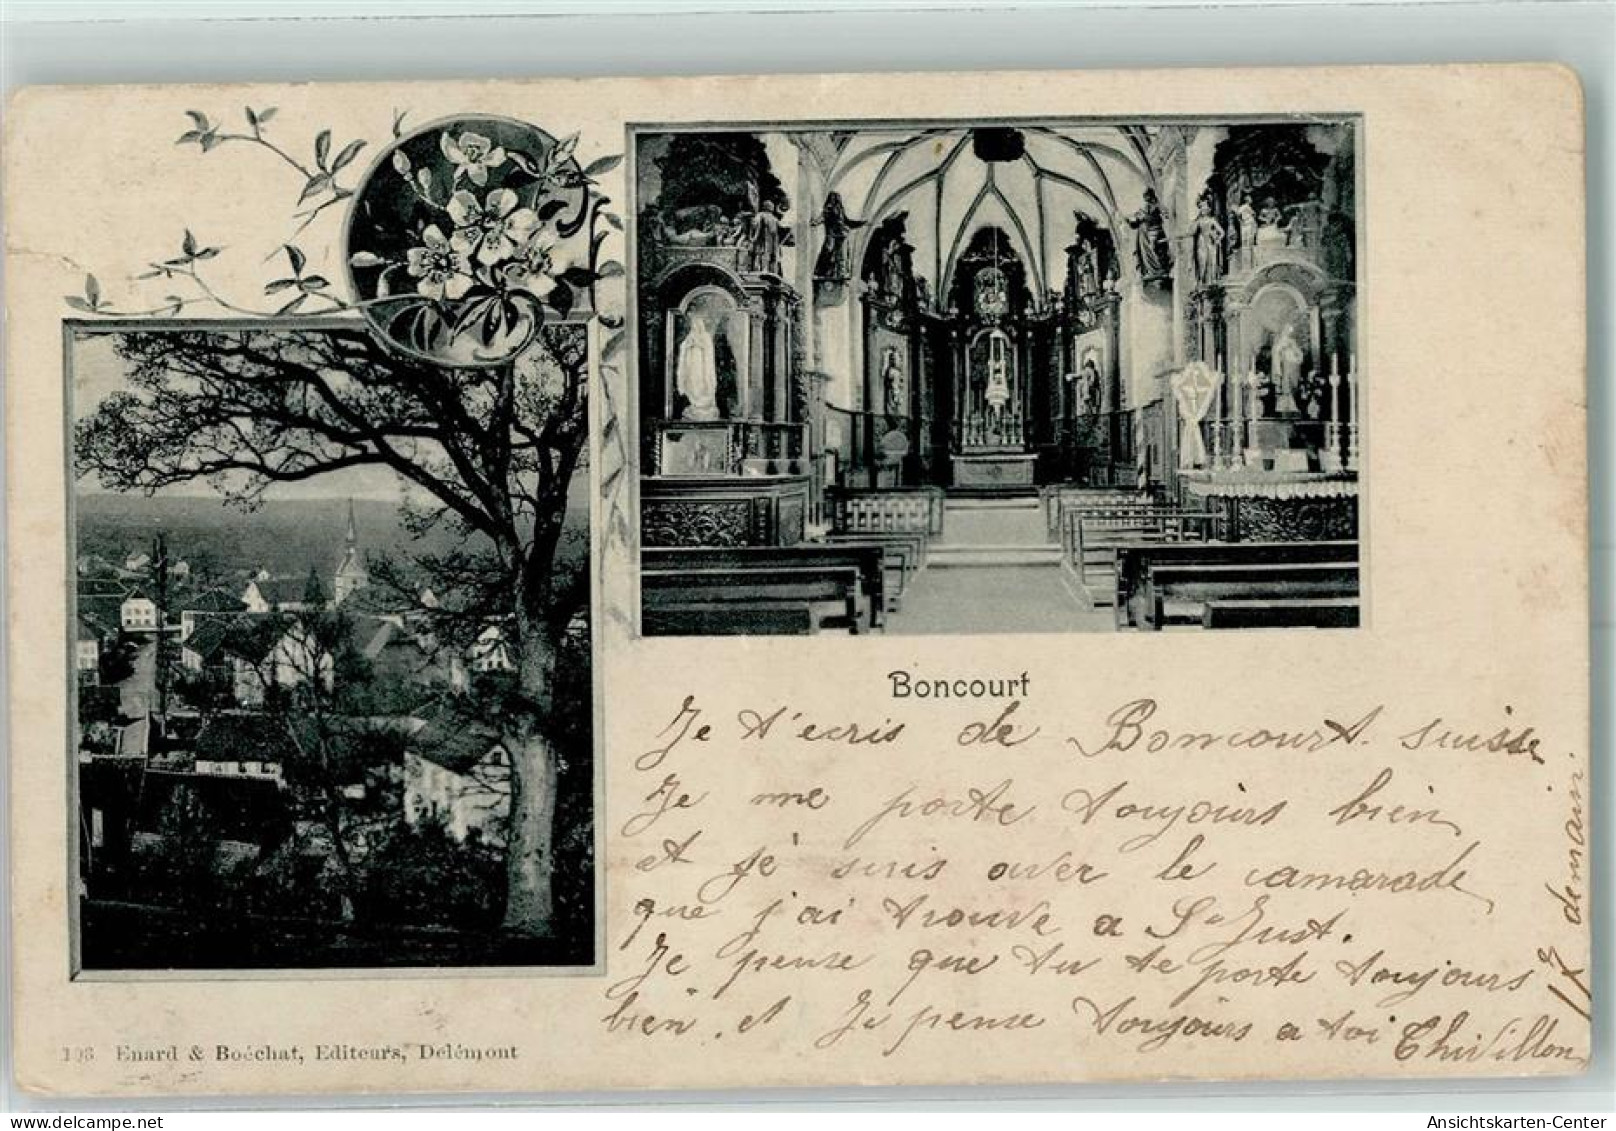 Boncourt
Je t'ecris de Boncourt. suisse
Je me porte toujours bien
et je suis avec le camarade
que j'ai trouve a St Just.
Je pense que tu te porte toujours
bien. et Je pense toujours a toi
demain
196 Enard & Boéchat, Editeurs, Delémont
Ansichtskarten-Center